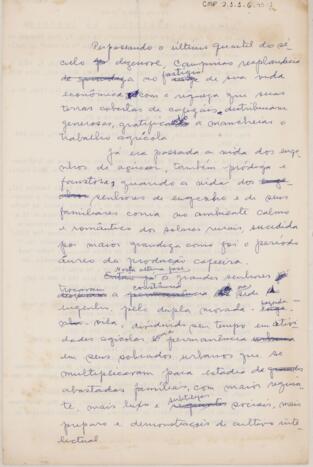 CMP 2.1.1.6.
Perpassando o último quartel do sé-
culo dezenove, Campinas resplandecia
no fastígio de sua vida
econômica com a riqueza que suas
terras cobertas de cafezais distribuíam
generosas, gratificando a mancheias o
trabalho agrícola.
Já era passada a vida dos enge-
nhos de açúcar, também pródiga e
faustosa, quando a vida dos
senhores de engenho e de seus
familiares corria no ambiente calmo
e romântico dos solares rurais, sucedida
por maior grandeza como foi o período
áureo da produção cafeeira.
Nesta última fase
já grandes senhores
trocaram a constância na sede do
engenho, pela dupla morada:
vila, dividindo seu tempo em ativi-
dades agrícolas e permanência
em seus sobrados urbanos que se
multiplicaram para estadia de
abastadas famílias, com maior requin-
te, mais luxo e sutilezas sociais, mais
preparo e demonstração de cultivo inte-
lectual.